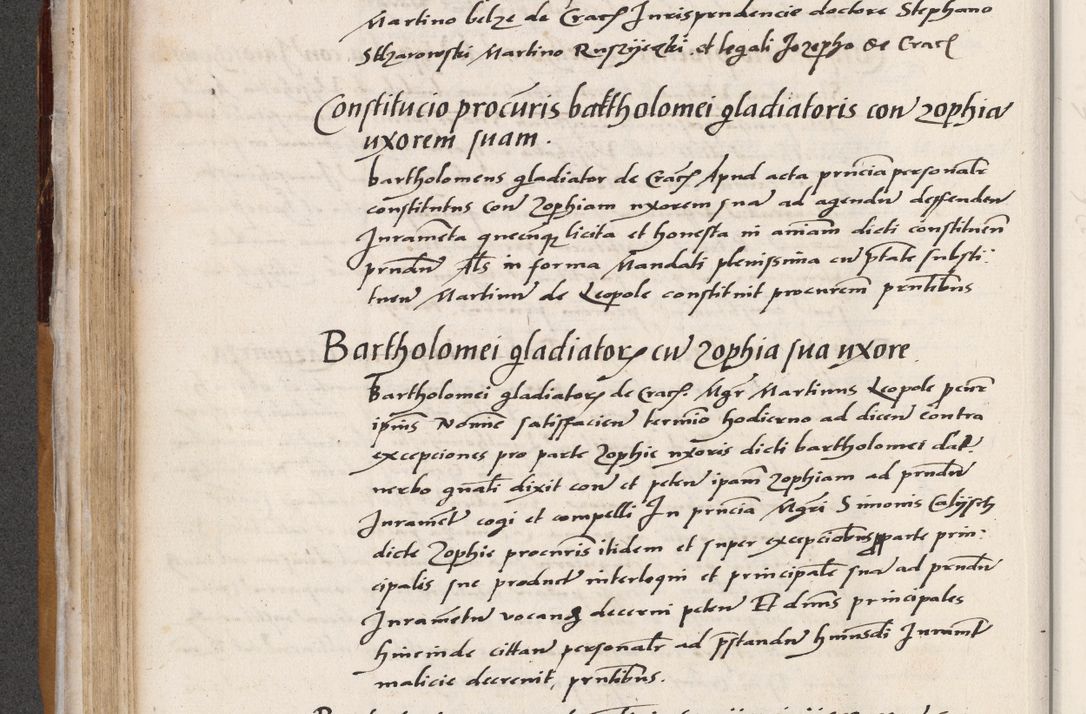 Martino belze de Crac Jurisprudencie doctore Stephano
Skarowski Martino Ruszyeczki et legali Jozepho de Crac
Constitucio procuris bartholomei gladiatoris con zophia
uxorem suam.
bartholomeus gladiator de Crac Apud acta pruncia personalr
constitutus con Zophiam uxorem sua ad agendu deffenden
Jurameta quecunq licita et honesta in aniam dicti constituen
prndu Als in forma Mandati plenissima cu ptate substi:
tuen Martinu de Leopole constituit procurem prntibus
Bartholomei gladiator cu zophia sua uxore
Bartholomei gladiator de Crac. Mgr Martinus Leopole pcur
ipius Nomie satisfacien termio hodierno ad dicen contra
excepciones pro parte Zophie uxoris dicti bartholomei dat.
verbo gnali dixit con et peten ipam zophiam ad prndu
Juramet cogi et compelli In prncia Mgri Simonis Calyssch
dicte Zophie procuris itidem et super excepciobus parte prin:
cipalis sue product interloqui et principale sua ad prndu
Jurametu vocand decerni peten Et dnus principales
hincinde cittau personalr ad pstandu huiusdi Juramt
malicie decrevit, prntibus.